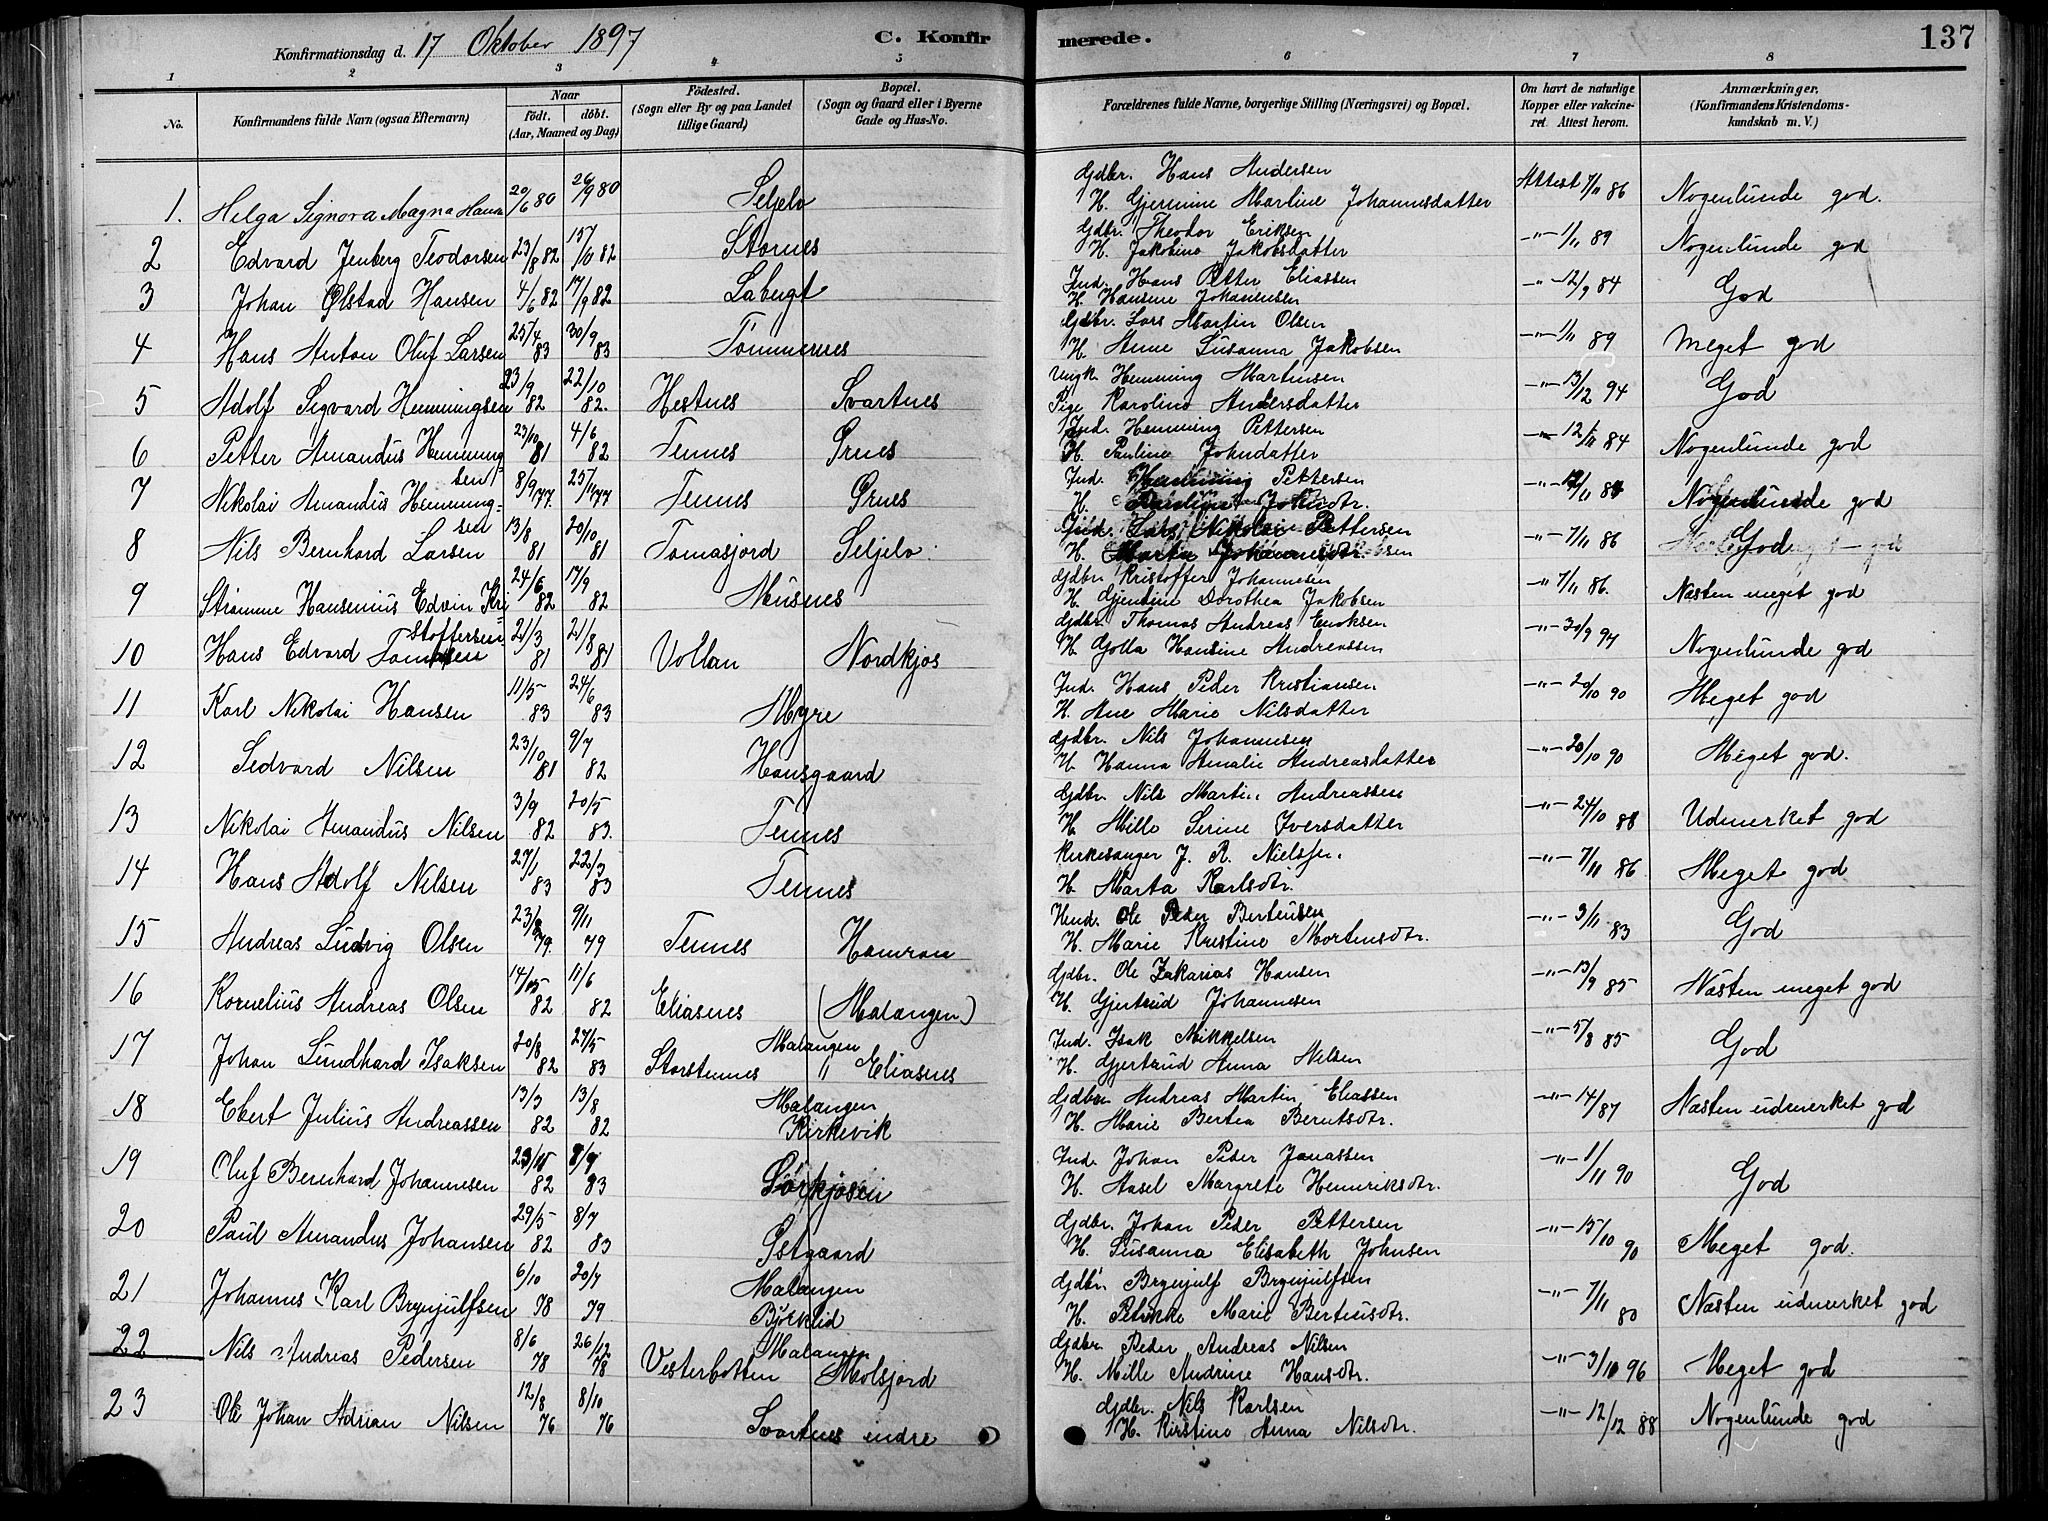 Konfirmationsdag d. 17 Oktober 1897
C. Konfirmerede.
137
1 2 3 4 5 6 7 8
No.
Konfirmandens fulde Navn (ogsaa Efternavn)
Naar
födt. döbt.
(Aar, Maaned og Dag)
Födested.
(Sogn eller By og paa Landet tillige Gaard)
Bopæl.
(Sogn og Gaard eller i Byerne Gade og Hus-No.
Forældrenes fulde Navne, borgerlige Stilling (Næringsvei) og Bopæl.
Om havt de naturlige Kopper eller vakcineret. Attest herom.
Anmærkninger.
(Konfirmandens Kristendomskundskab m. V.)
1. Helga Signora Magna Hans 20/6 80 26/9 80 Seljelv Gdbr. Hans Andersen
H. Gjermine Martine Johannesdatter Attest 7/11 86 Nogenlunde god.
2 Edvard Jenberg Teodorsen 23/8 82 15/10 82 Stornes Gdbr. Theodor Eriksen
H. Jakobine Jakobsdatter -"- 1/11 89 Nogenlunde god
3 Johan Olstad Hansen 4/6 82 17/9 82 Labugt Ind. Hans Petter Eliassen
H. Hansine Johannesen -"- 12/9 84 God
4 Hans Anton Oluf Larsen 25/4 83 30/9 83 Tömmernes Gdbr. Lars Martin Olsen
H. Anne Susanna Jakobsen -"- 1/11 89 Meget god
5 Adolf Sigvard Henningsen 23/9 82 22/10 82. Hestnes Svartnes Ungk. Henning Martinsen
Pige Karoline Andersdatter -"- 13/12 94 God
6 Petter Amandus Henningsen 23/10 81 4/6 82 Tennes Grnes Ind. Henning Pettersen
H. Pauline Johndatter -"- 12/11 84 Nogenlunde god
7 Nikolai Amandus Henningsen 8/9 77. 25/11 77 Tennes Grnes Ind. Henning Pettersen
H. Johnsdtr. -"- 12/11 84 Nogenlunde god
8 Nils Bernhard Larsen 13/8 81 20/10 81 Tomasjord Seljelv. Ind. Lars Nikolai Pettersen
H. Marta Johannesdtr. -"- 7/11 86 God
9 Strømme Hansenius Edvin Kristoffersen 24/6 82 17/9 82 Musnes Gdbr. Kristoffer Johannesen
H. Gjentine Dorothea Jakobsen -"- 7/11 86. Næsten meget god
10 Hans Edvard Tomasen 21/3 81 21/8 81 Vollan Nordkjos Gdbr. Thomas Andreas Enoksen
H. Golla Hansine Andreassen -"- 30/9 97 Nogenlunde god
11 Karl Nikolai Hansen 11/5 83 24/6 83 Myre Ind. Hans Peder Kristiansen
H. Ane Marie Nilsdatter -"- 20/10 90 Meget god
12 Sedvard Nilsen 23/10 81 9/7 82 Hansgaard Gdbr. Nils Johannesen
H. Hanna Amalie Andreasdatter -"- 20/10 90 Meget god.
13 Nikolai Amandus Nilsen 3/9 82 20/5 83. Tennes Gdbr. Nils Martin Andreassen
H. Mille Serine Iversdatter -"- 24/10 88 Udmerket god
14 Hans Adolf Nilsen 27/1 83 22/3 83 Tennes Kirkesanger J. R. Nielssen.
H. Marta Karlsdtr. -"- 7/11 86 Meget god
15 Andreas Ludvig Olsen 23/9 79. 9/11 79 Tennes Hamran Hmd. Ole Peder Berteusen
H. Marie Kristine Mortensdtr. -"- 3/11 83 God
16 Kornelius Andreas Olsen 14/05 82 11/6 82 Eliasnes (Malangen) Gdbr. Ole Zakarias Hansen
H. Gjertrud Johannesen -"- 13/9 85 Næsten meget god
17 Johan Lundhard Isaksen 20/8 82 27/5 83 Malangen Storstennes " Eliasnes Ind. Isak Mikkelsen
H. Gjertrud Anna Nilsen -"- 5/8 85 God
18 Ebert Julius Andreassen 13/3 82 13/8 82 Malangen Kirkevik Gdbr. Andreas Martin Eliassen
H. Marie Bertea Berntsdtr. -"- 14/87 Næsten udmerket god
19 Oluf Bernhard Johannesen 23/11 82 8/7 83 Sörkjosen Ind. Johan Peder Jonassen
H. Aasel Margrete Henriksdtr. -"- 1/11 90 God
20 Paul Amandus Johansen 29/5 82 8/7 83 Östgaard Gdbr. Johan Peder Pettersen
H. Susanna Elisabeth Johnsen -"- 15/10 90 Meget god.
21 Johannes Karl Brynjulfsen 6/10 78 20/7 79 Malangen Björklid Gdbr. Brynjulf Brynjulfsen
H. Petrikke Marie Berteusdtr. -"- 7/11 80 Næsten udmerket god
22 Nils Andreas Pedersen 8/6 78 26/12 78 Malangen Vesterbotten Molsjord Gdbr. Peder Andreas Nilsen
H. Mille Andrine Hansdtr. -"- 3/10 96 Meget god
23 Ole Johan Adrian Nilsen 12/8 76 8/10 76 Svartnes indre Gdbr. Nils Karlsen
H. Kirstine Anna Nilsdtr. -"- 12/12 88 Nogenlunde god